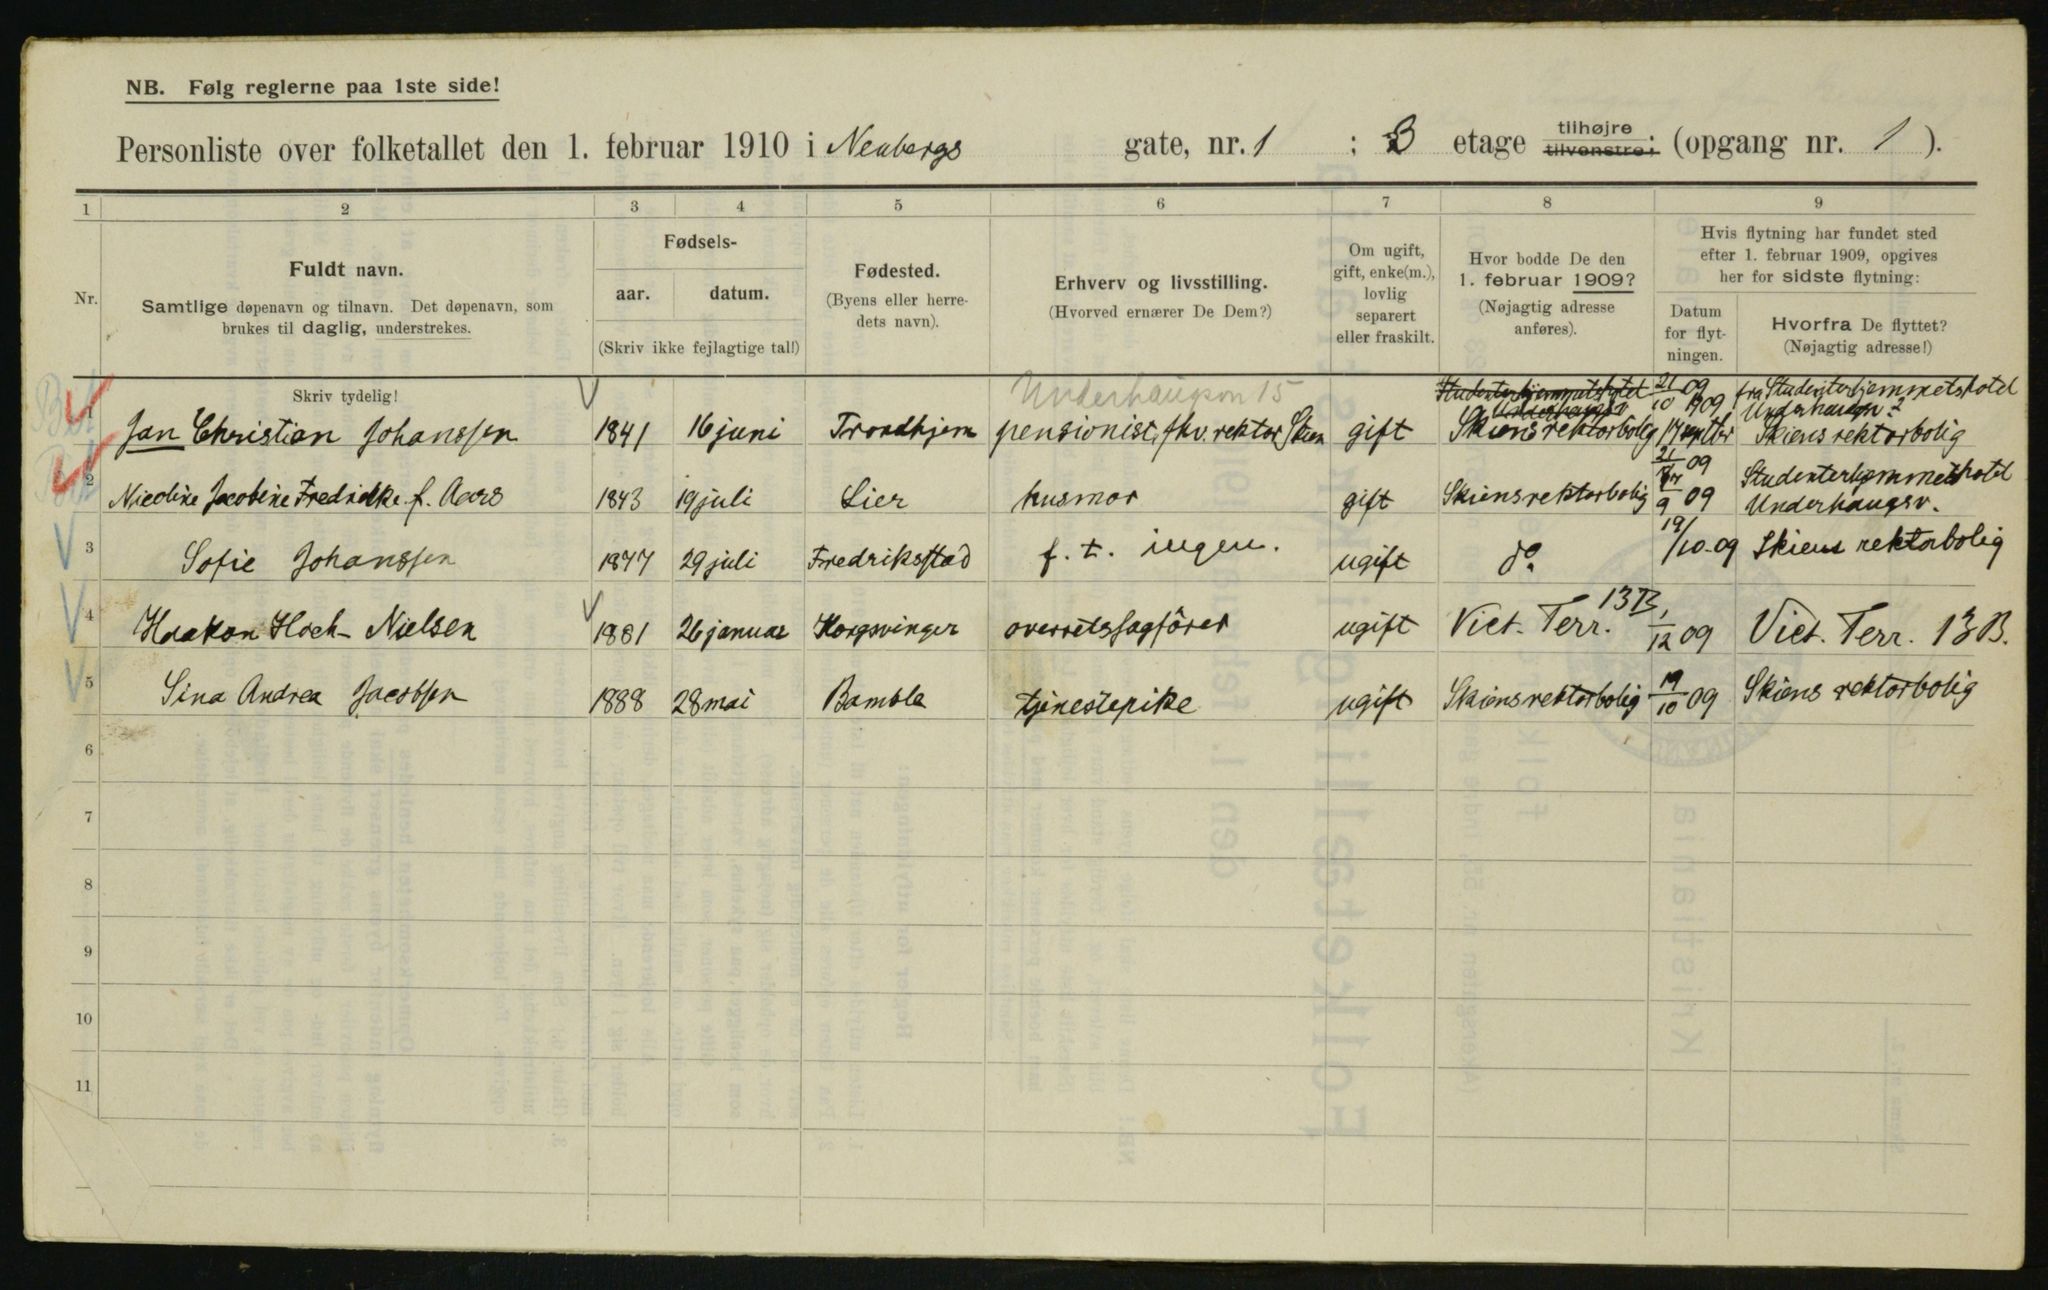 NB. Følg reglerne paa 1ste side!
Personliste over folketallet den 1. februar 1910 i Neubergs gate, nr. 1 : 3 etage tilhøjre tilvenstre; (opgang nr. 1 ).
1 2 3 4 5 6 7 8 9
Nr.
Fuldt navn.
Samtlige døpenavn og tilnavn. Det døpenavn, som
brukes til daglig, understrekes.
Fødsels-
aar. datum.
(Skriv ikke fejlagtige tal!)
Fødested.
(Byens eller herre-
dets navn).
Erhverv og livsstilling.
(Hvorved ernærer De Dem?)
Om ugift,
gift, enke(m.),
lovlig
separert
eller fraskilt.
Hvor bodde De den
1. februar 1909?
(Nøjagtig adresse
anføres).
Hvis flytning har fundet sted
efter 1. februar 1909, opgives
her for sidste flytning:
Datum
for flyt-
ningen.
Hvorfra De flyttet?
(Nøjagtig adresse!)
Skriv tydelig!
Underhaugsv 15
Studenterhjemmetshotel 21/10 09 fra Studenterhjemmetshotel
Underhaugsv
1 Jan Christian Johanssen 1841 16 juni Trondhjem pensionist, fhv. rektor Skien gift Skiens rektorbolig 17 septbr Skiens rektorbolig
21 09 Studenterhjemmetshotel
2 Nicoline Jacobine Fredrikke f. Aars 1843 19 juli Lier husmor gift Skiens rektorbolig 9 09 Underhaugsv.
3 Sofie Johanssen 1877 29 juli Fredriksstad f. t. ingen. ugift do 19/10-09 Skiens rektorbolig
4 Haakon Hoch-Nielsen 1881 26 januar Kongsvinger overretssagfører ugift Vict. Terr. 13 B, 1/12 09 Vict. Terr. 13 B.
5 Sina Andrea Jacobsen 1888 28 mai Bamble tjenestepike ugift Skiens rektorbolig 19/10 09 Skiens rektorbolig
6
7
8
9
10
11